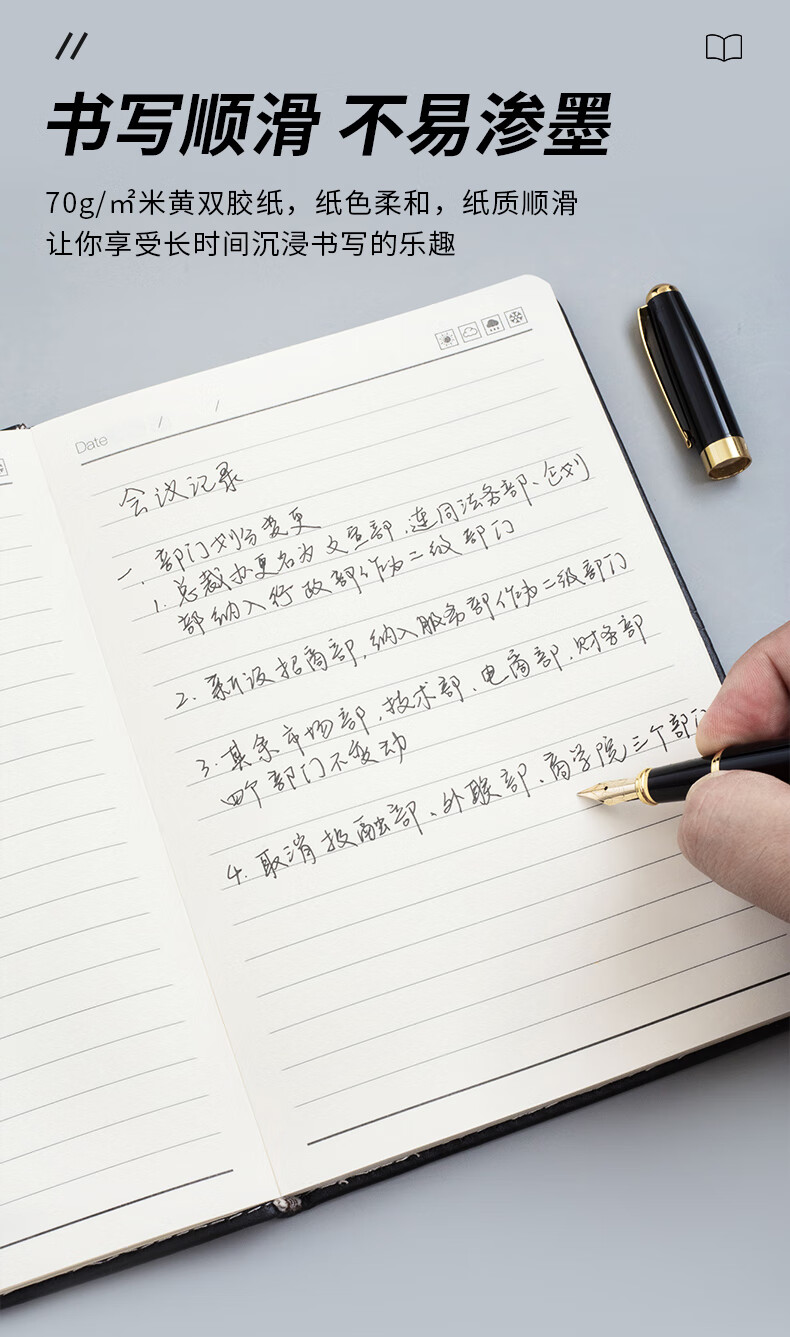 书写顺滑 不易渗墨
70g/㎡米黄双胶纸，纸色柔和，纸质顺滑
让你享受长时间沉浸书写的乐趣
Date / /
会议记录
一、部门划分变更
1. 总裁办更名为文宣部，连同法务部、企划
部纳入行政部作为二级部门
2. 新设招商部，纳入服务部作为二级部门
3. 其余市场部、技术部、电商部、财务部
四个部门不变动
4. 取消投融部、外联部、商学院三个部门